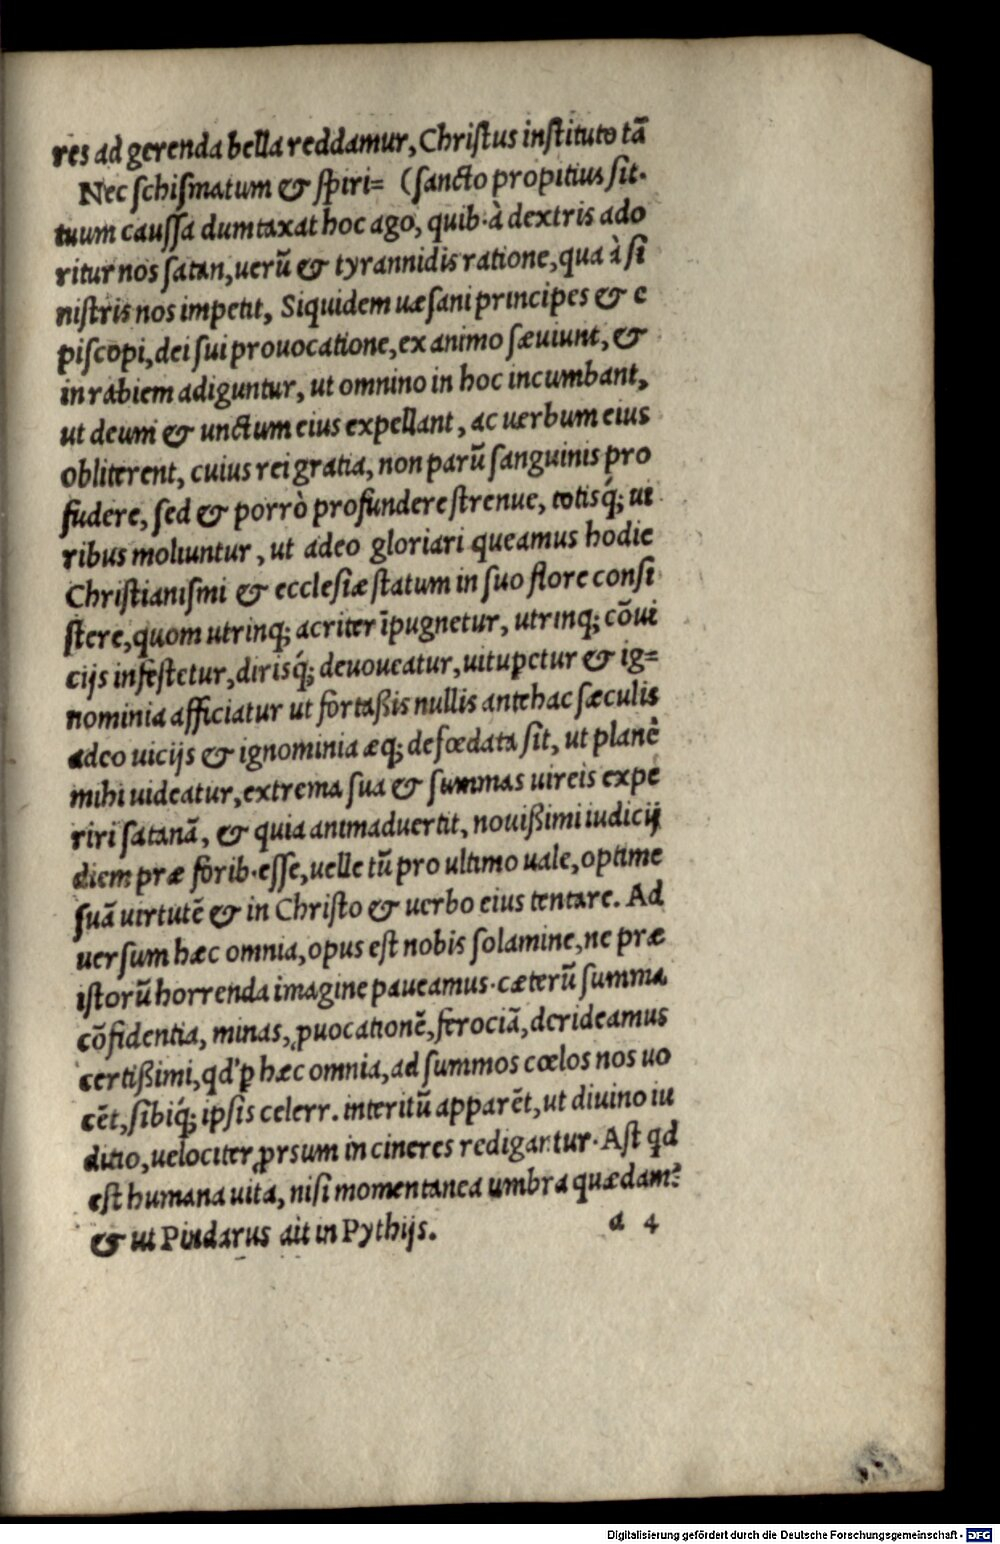 res ad gerenda bella reddamur, Chriſtus inſtituto tã
Nec ſchiſmatum & ſpiri= (ſancto propitius ſit.
tuum cauſſa dumtaxat hoc ago, quib. à dextris ado
ritur nos ſatan, uerũ & tyrannidis ratione, qua à ſi
niſtris nos impetit, Siquidem uæſani principes & e
piſcopi, dei ſui prouocatione, ex animo ſæuiunt, &
in rabiem adiguntur, ut omnino in hoc incumbant,
ut deum & unctum eius expellant, ac uerbum eius
obliterent, cuius rei gratia, non parũ ſanguinis pro
fudere, ſed & porrò profundere ſtrenue, totisq́; ui
ribus moliuntur, ut adeo gloriari queamus hodie
Chriſtianiſmi & eccleſiæ ſtatum in ſuo flore conſi
ſtere, quom utrinq; acriter ĩpugnetur, utrinq; cõui
cijs infeſtetur, dirisq́; deuoueatur, uituꝑetur & ig=
nominia afficiatur ut fortaßis nullis antehac ſæculis
adeo uicijs & ignominia æq; defœdata ſit, ut planè
mihi uideatur, extrema ſua & ſummas uireis expe
riri ſatanã, & quia animaduertit, nouißimi iudicij
diem præ forib. eſſe, uelle tũ pro ultimo uale, optime
ſuã uirtutẽ & in Chriſto & uerbo eius tentare. Ad
uerſum hæc omnia, opus eſt nobis ſolamine, ne præ
iſtorũ horrenda imagine paueamus. cæterũ ſumma
cõfidentia, minas, ꝓuocationẽ, ferociã, derideamus
certißimi, qd' ꝑ hæc omnia, ad ſummos cœlos nos uo
cẽt, ſibiq́; ipſis celerr. interitũ apparẽt, ut diuino iu
ditio, uelociter ꝓrsum in cineres redigantur. Aſt qd
eſt humana uita, niſi momentanea umbra quædam?
& ut Pindarus ait in Pythijs.
a 4
Digitalisierung gefördert durch die Deutsche Forschungsgemeinschaft - DFG